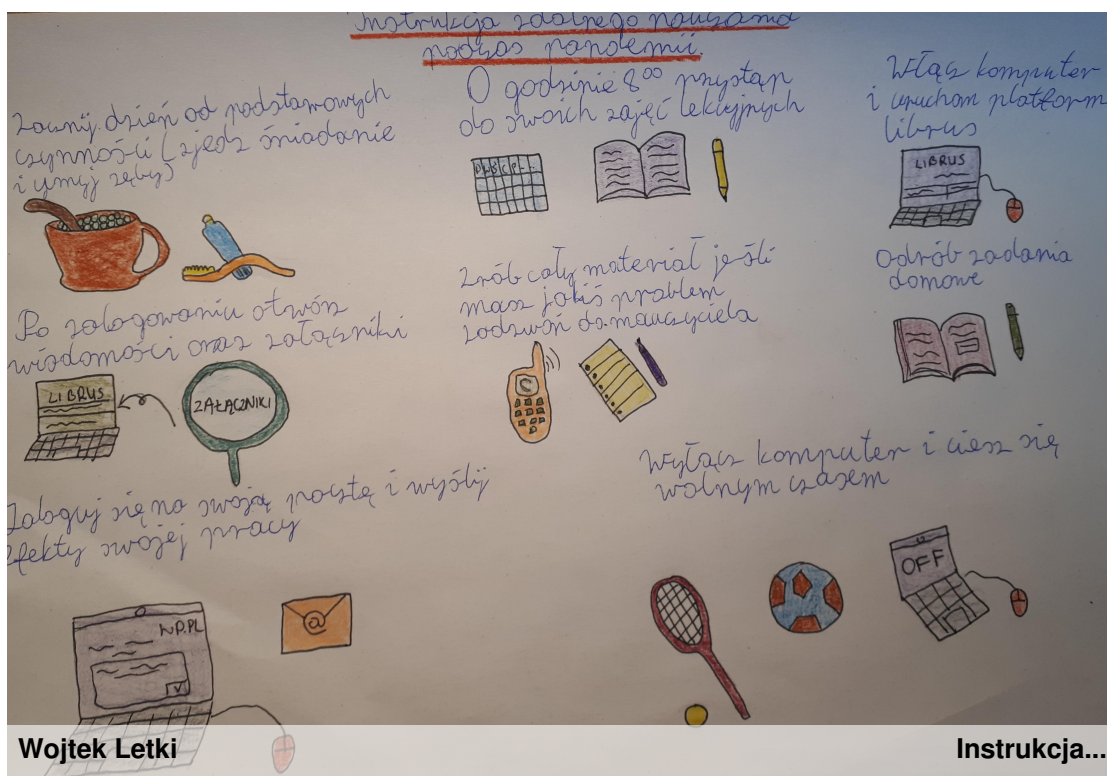 Instrukcja zdalnego nauczania
podczas pandemii.
Zacznij dzień od podstawowych
czynności (zjedz śniadanie
i umyj zęby)
O godzinie 8⁰⁰ przystąp
do swoich zajęć lekcyjnych
Włącz komputer
i uruchom platform
librus
LIBRUS
Po zalogowaniu otwórz
wiadomości oraz załączniki
LIBRUS
ZAŁĄCZNIKI
Zrób cały materiał jeśli
masz jakiś problem
zadzwoń do nauczyciela
C
Odrób zadania
domowe
Zaloguj się na swoją pocztę i wyślij
efekty swojej pracy
WP.PL
@
Wyłącz komputer i ciesz się
wolnym czasem
OFF
Wojtek Letki
Instrukcja...